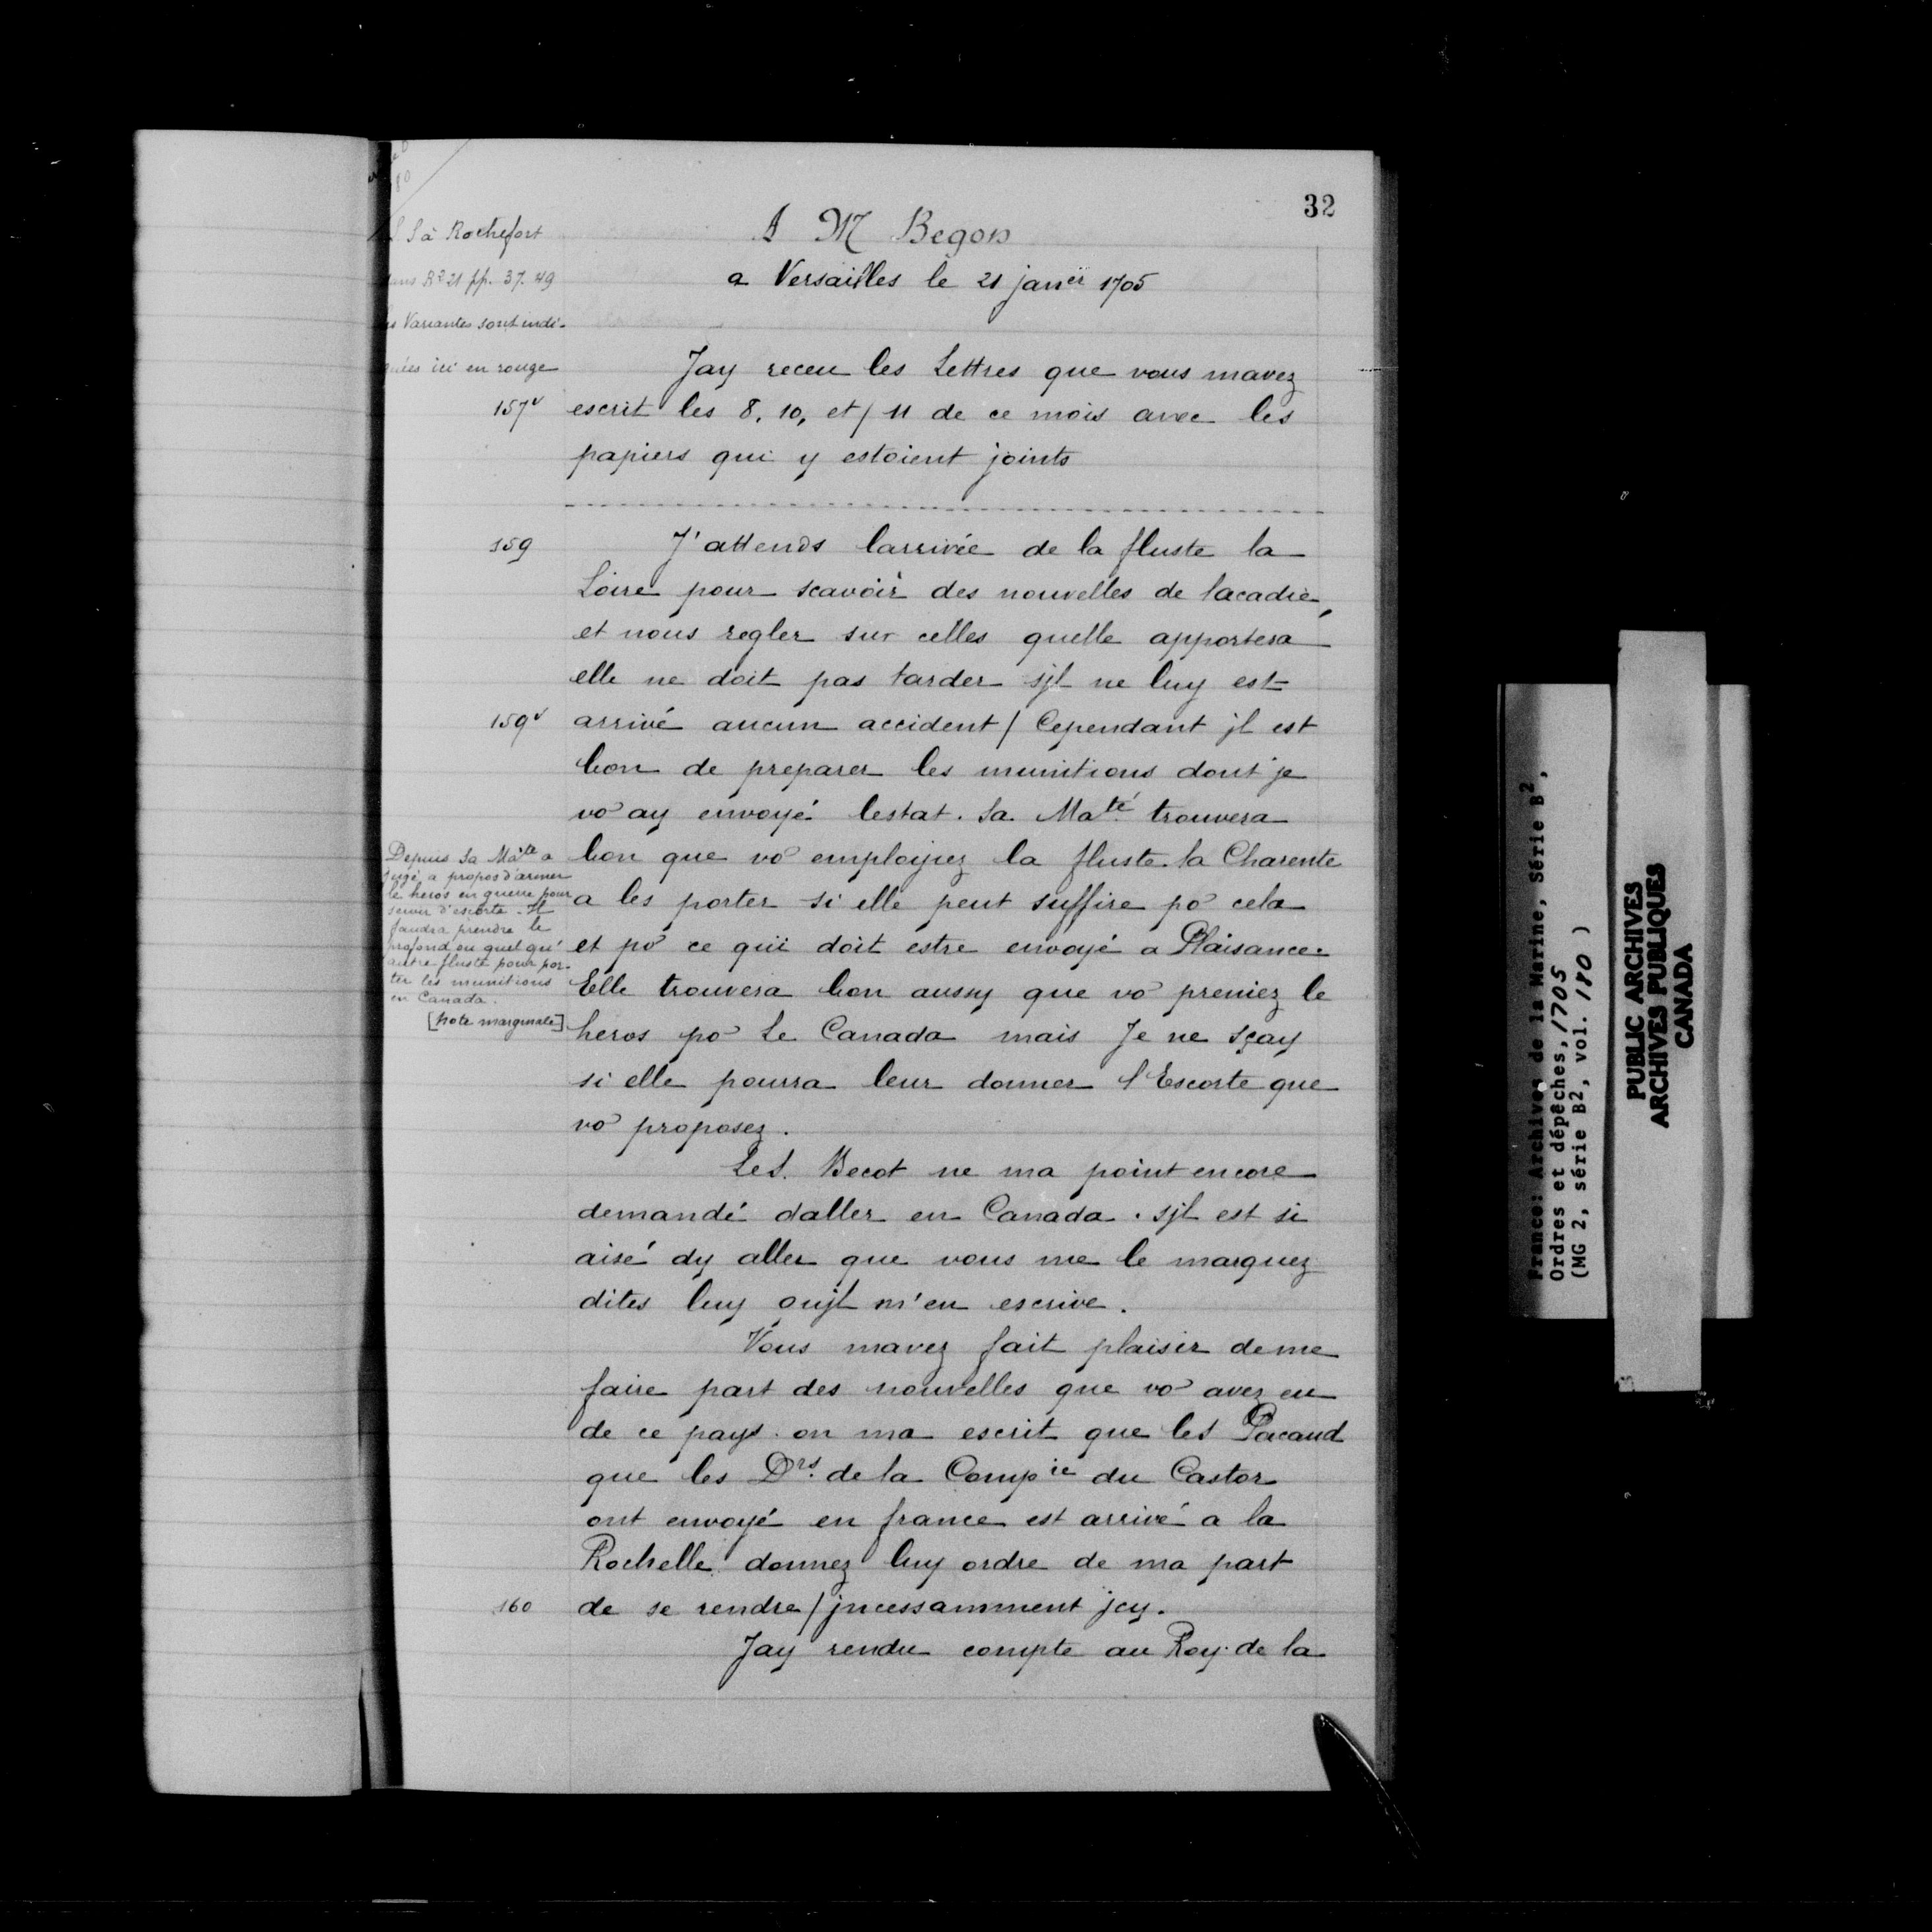 32
à Rochefort
R² 21 pp. 37. 49
Variantes sont indi-
quées ici en rouge
A M Begon
a Versailles le 21 janer 1705
Jay receu les Lettres que vous mavez
157v escrit les 8, 10, et / 11 de ce mois avec les
papiers qui y estoient joints
159 J'attends larrivée de la fluste la
Loire pour scavoir des nouvelles de lacadie,
et nous regler sur celles quelle apportera
elle ne doit pas tarder sjl ne luy est
159v arrivé aucun accident / Cependant jl est
bon de preparer les munitions dont je
vo ay envoyé lestat. Sa Maté trouvera
bon que vo employiez la fluste la Charente
a les porter si elle peut suffire po cela
et po ce qui doit estre envoyé a Plaisance.
Elle trouvera bon aussy que vo preniez le
heros po Le Canada mais Je ne sçay
si elle pourra leur donner l'Escorte que
vo proposez.
Depuis Sa Maté a
jugé a propos d'armer
le heros en guerre pour
servir d'escorte. Il
faudra prendre le
profond ou quelqu'
autre fluste pour por-
ter les munitions
en Canada.
[Note marginale]
Le S. Becot ne ma point encore
demandé daller en Canada. sjl est si
aisé dy aller que vous me le marquez
dites luy qujl m'en escrive.
Vous mavez fait plaisir de me
faire part des nouvelles que vo avez eu
de ce pays. on ma escrit que le S Pacaud
que les Drs. de la Compie du Castor
ont envoyé en france est arrivé a la
Rochelle donnez luy ordre de ma part
160 de se rendre / jncessamment jcy.
Jay rendu compte au Roy de la
France: Archives de la Marine, Série B2,
Ordres et dépêches, 1705
(MG 2, série B2, vol. 180 )
PUBLIC ARCHIVES
ARCHIVES PUBLIQUES
CANADA